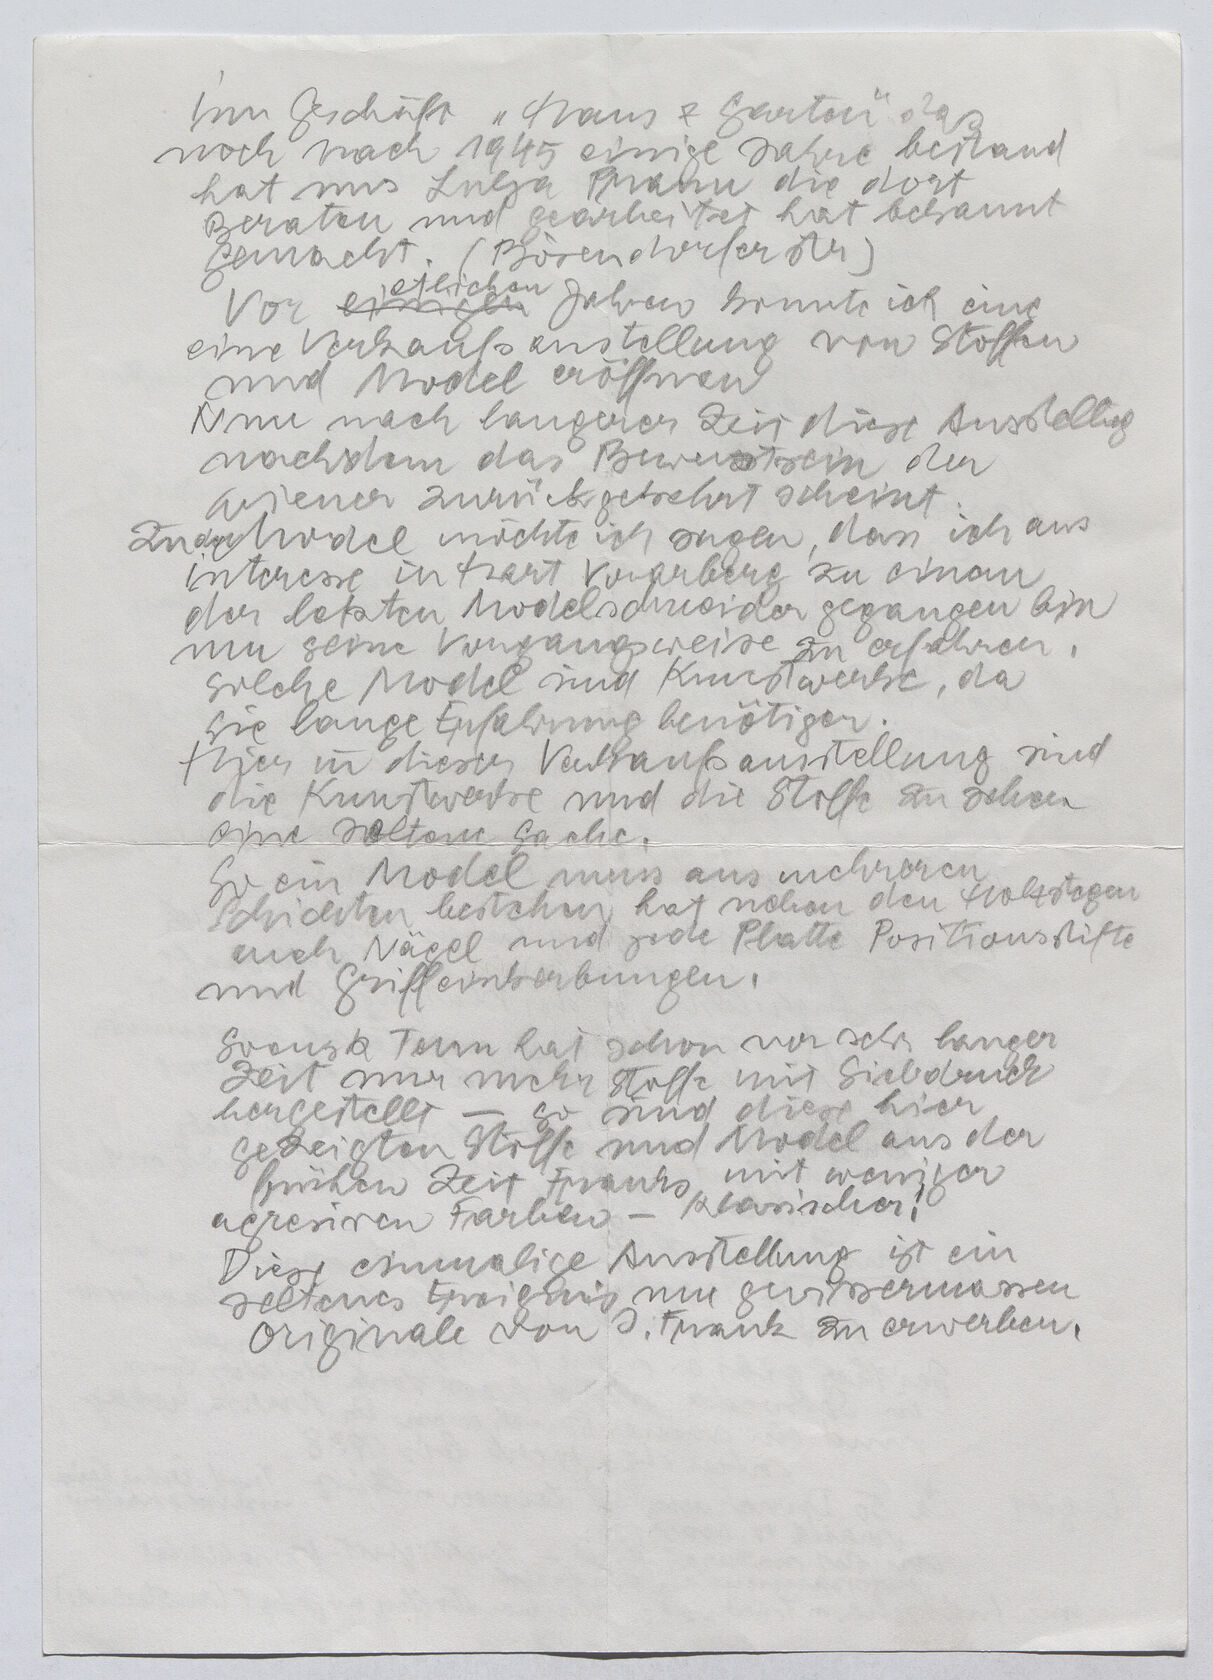 Im Geschäft "Haus & Garten" das
noch nach 1945 einige Jahre bestand
hat uns Lulja Praun die dort
Beraten und gearbeitet hat bekannt
gemacht. (Bösendorferstr)
Vor etlichen Jahren konnte ich eine
eine Verkaufsausstellung von Stoffen
und Model eröffnen
Nun nach langerer Zeit diese Ausstellug
nachdem das Bewusstsein der
Wiener zurückgekehrt scheint.
Zu den Model möchte ich sagen, dass ich aus
interesse in Hart Vorarlberg zu einen
der letzten Modelschneider gegangen bin
um seine Vorgangsweise zu erfahren.
Solche Model sind Kunstwerke, da
sie lange Erfahrung benötigen.
Hier in dieser Verkaufsausstellung sind
die Kunstwerke und die Stoffe zu sehen
eine seltene Sache.
So ein Model muss aus mehreren
Schichten bestehen, hat neben den Holzstegen
auch Nägel und jede Platte Positionsstifte
und Griffeinkerbungen.
Svensk Tenn hat schon vor sehr langer
Zeit nur mehr Stoffe mit Siebdruck
hergestellt — so sind diese hier
gezeigten Stoffe und Model aus der
frühen Zeit Franks mit weniger
agresiven Farben — klassischer!
Diese einmalige Ausstellung ist ein
seltenes Ereignis um gewissermassen
Originale von J. Frank zu erwerben.